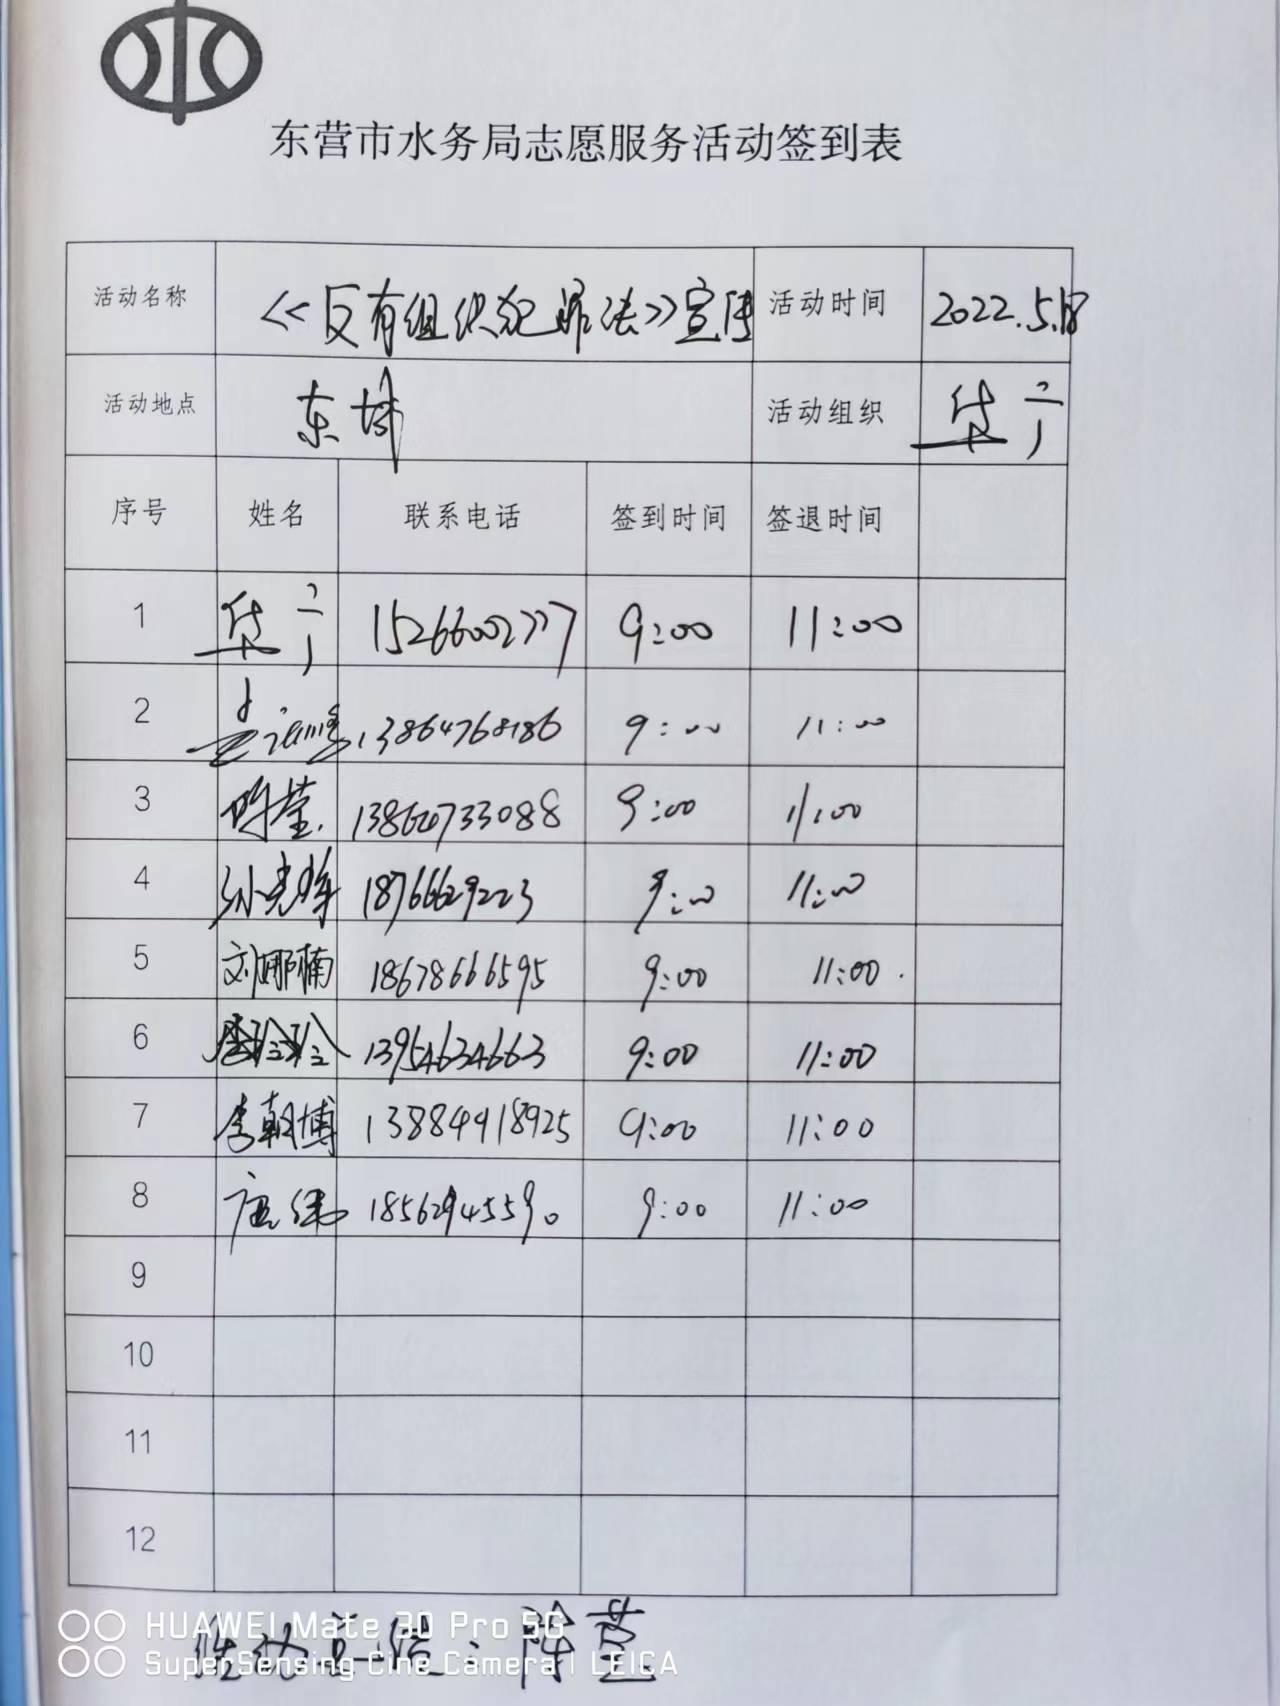 东营市水务局志愿服务活动签到表
活动名称 《反有组织犯罪法》宣传 活动时间 2022.5.18
活动地点 东城 活动组织
序号 姓名 联系电话 签到时间 签退时间
1 15266002777 9:00 11:00
2 13864768186 9:00 11:00
3 陈莹 9:00 11:00
4 孙光辉 18766629223 9:00 11:00
5 刘娜楠 18678666595 9:00 11:00
6 李玲玲 13954634663 9:00 11:00
7 李朝博 13884918925 9:00 11:00
8 唐伟 18562945590 9:00 11:00
9
10
11
12
HUAWEI Mate 30 Pro 5G
SuperSensing Cine Camera | LEICA
陈莹